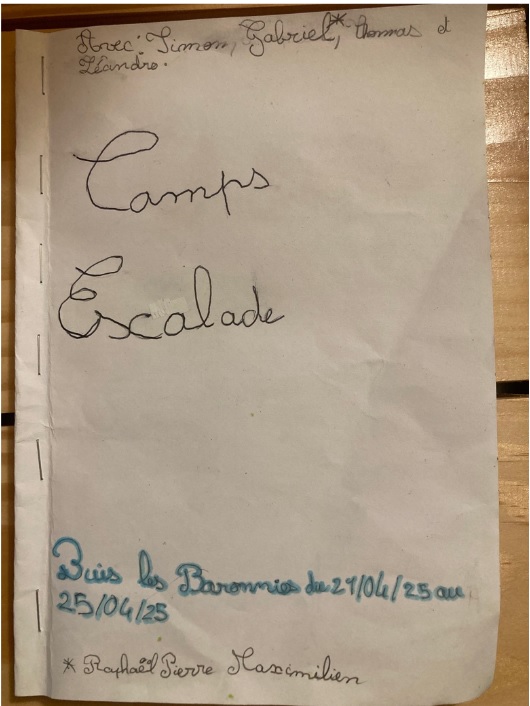 Avec: Simon, Gabriel*, thomas et
Léandre.
Camps
Escalade
Buis les Baronnies du 21/04/25 au
25/04/25
* Raphaël Pierre Maximilien